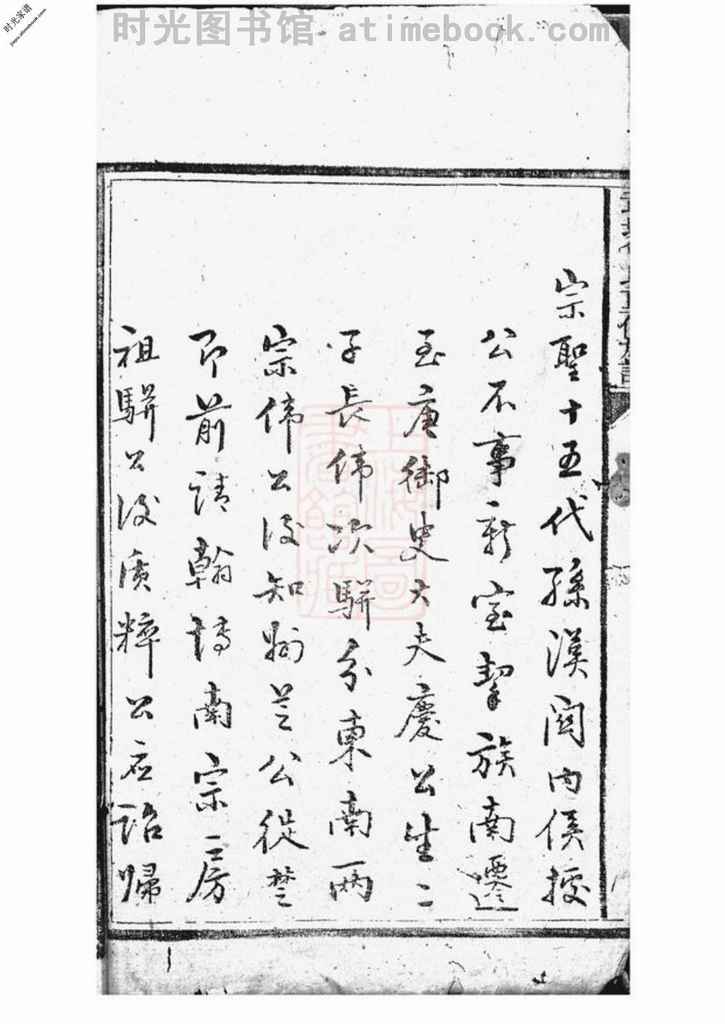 时光图书馆 - atimebook.com
时光家谱
宗聖十五代孫漢関内侯據
公不事新室挈族南遷
至唐御史大夫慶公生二
子長偉次駢分東南兩
宗偉公後知州公從楚
即前請翰博南宗二房
祖駢公後質粹公應詔歸